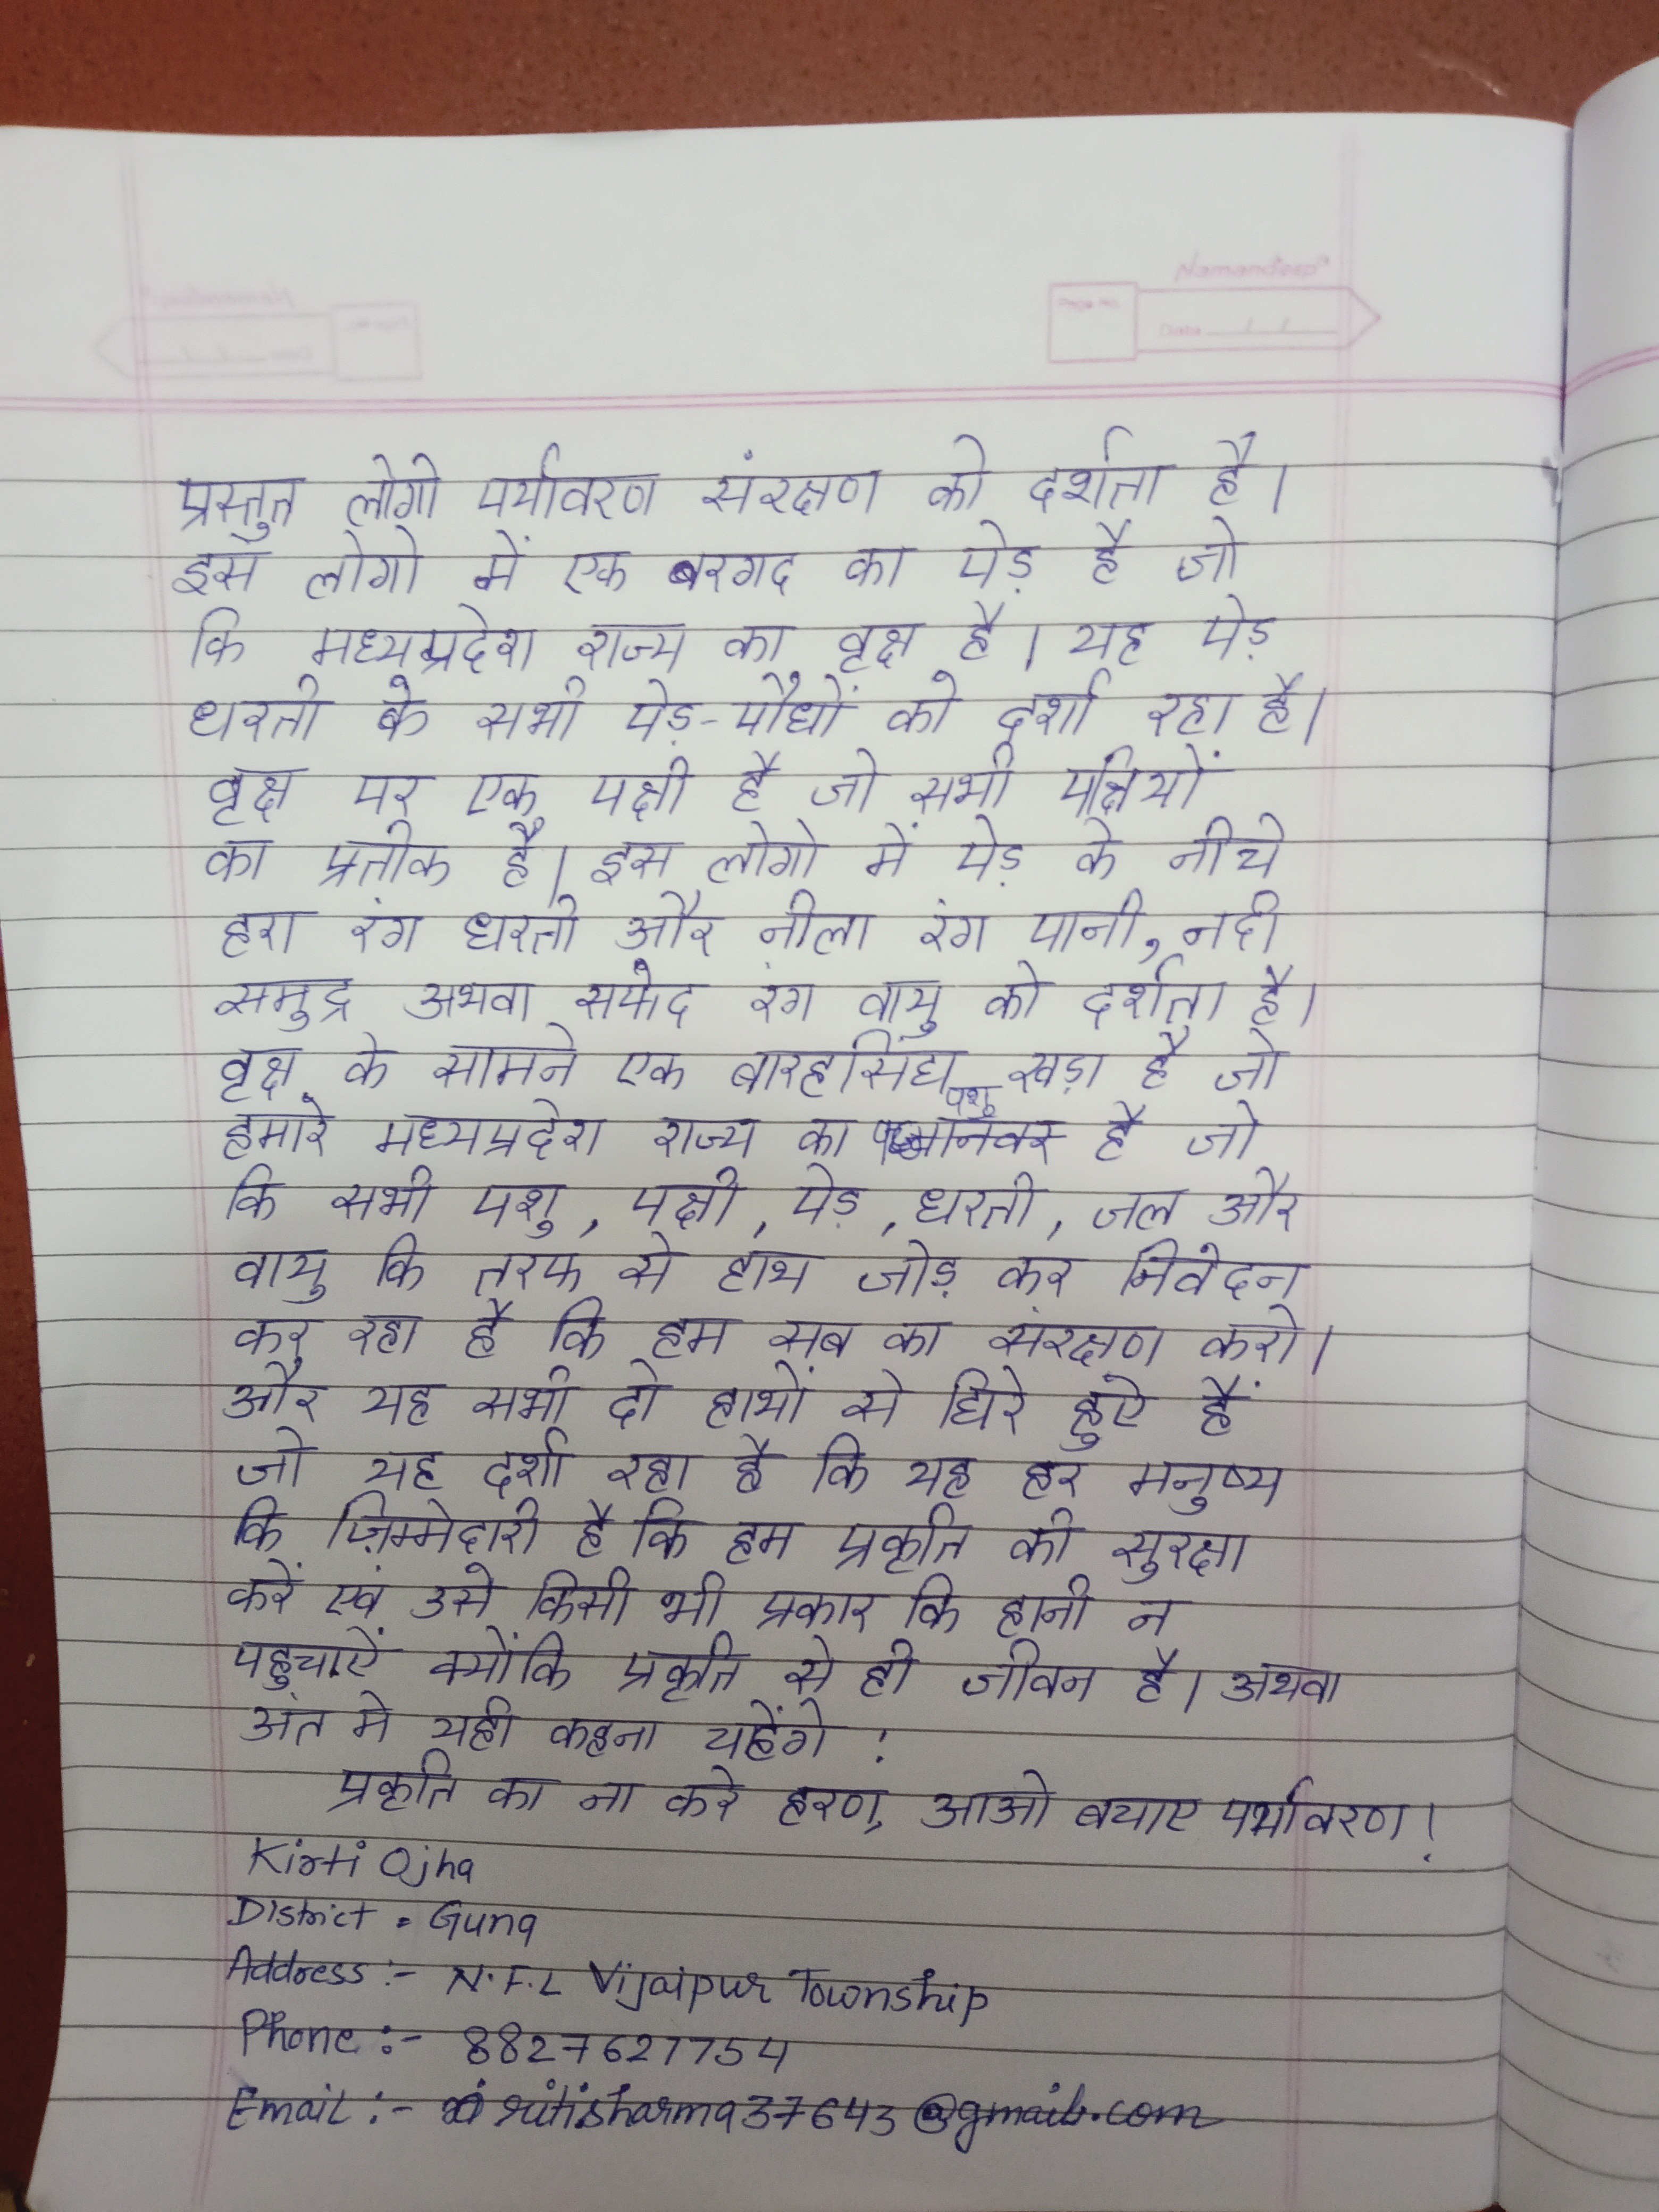 प्रस्तुत लोगो पर्यावरण संरक्षण को दर्शता है।
इस लोगो में एक बरगद का पेड़ है जो
कि मध्यप्रदेश राज्य का वृक्ष है। यह पेड़
धरती के सभी पेड़-पौधों को दर्शा रहा है।
वृक्ष पर एक पक्षी है जो सभी पक्षियों
का प्रतीक है। इस लोगो में पेड़ के नीचे
हरा रंग धरती और नीला रंग पानी, नदी
समुद्र अथवा सफेद रंग वायु को दर्शता है।
वृक्ष के सामने एक बारहसिंघा खड़ा है जो
हमारे मध्यप्रदेश राज्य का पशु है जो
कि सभी पशु, पक्षी, पेड़, धरती, जल और
वायु कि तरफ से हाथ जोड़ कर निवेदन
कर रहा है कि हम सब का संरक्षण करो।
और यह सभी दो हाथों से घिरे हुऐ हैं
जो यह दर्शा रहा है कि यह हर मनुष्य
कि ज़िम्मेदारी है कि हम प्रकृति की सुरक्षा
करें एवं उसे किसी भी प्रकार कि हानी न
पहुचाऐं क्योंकि प्रकृति से ही जीवन है। अथवा
अंत मे यही कहना चहेंगे :
प्रकृति का ना करे हरण, आओ बचाए पर्यावरण!
Kirti Ojha
District = Guna
Address :- N.F.L Vijaipur Township
Phone :- 8827627754
Email :- ritisharma37643@gmail.com